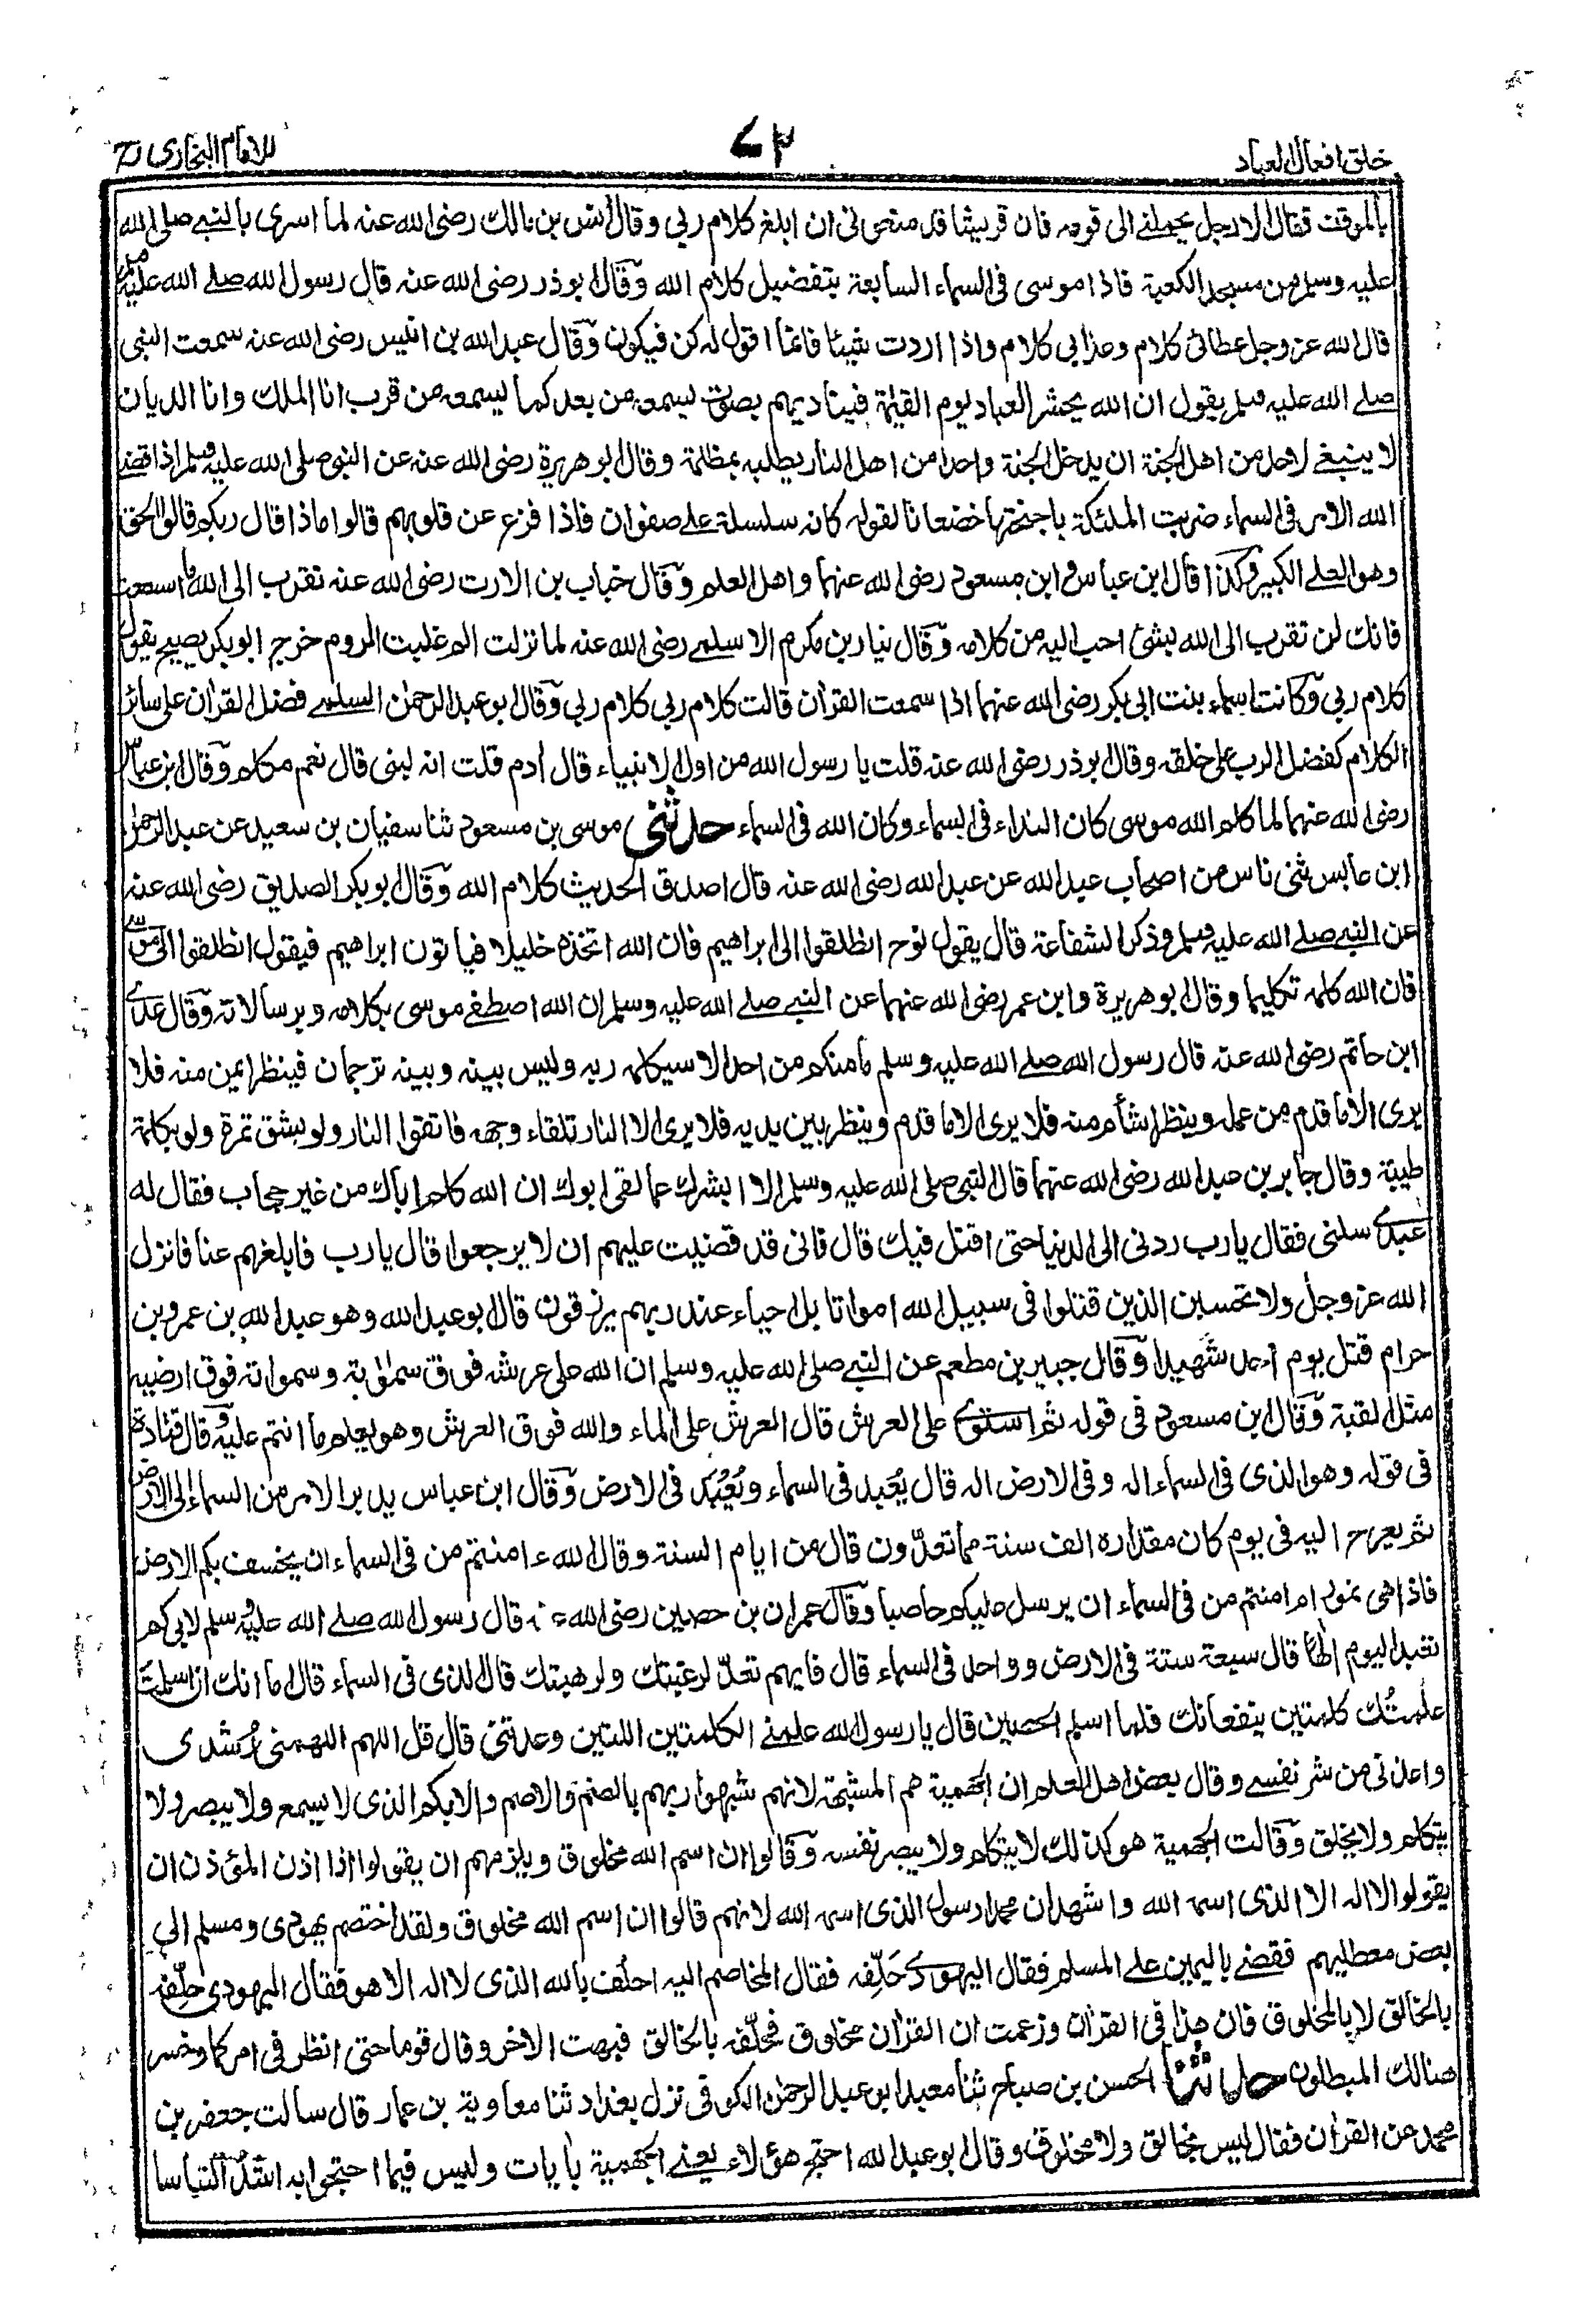 خلق افعال العباد
٧٣
للامام البخاری رح
بالموقف فقال الا رجل يحملنے الى قومه فان قريشا قد منعونی ان ابلغ كلام ربی وقال انس بن مالك رضی الله عنه لما اسری بالنبے صلی الله
عليه وسلم من مسجد الكعبة فاذا موسى فی السماء السابعة بتفضيل كلام الله وقال ابو ذر رضی الله عنه قال رسول الله صلے الله عليه وسلم
قال الله عز وجل عطائی كلام وعذابی كلام واذا اردت شيئا فانما اقول له كن فيكون وقال عبد الله بن انيس رضی الله عنه سمعت النبی
صلے الله عليه وسلم يقول ان الله يحشر العباد يوم القيمة فيناديهم بصوت يسمعه من بعد كما يسمعه من قرب انا الملك وانا الديان
لا ينبغے لاحد من اهل الجنة ان يدخل الجنة واحد من اهل النار يطلبه بمظلمة وقال ابو هريرة رضی الله عنه عن النبی صلی الله عليه وسلم اذا قضے
الله الامر فی السماء ضربت الملئكة باجنحتها خضعانا لقوله كانه سلسلة علے صفوان فاذا فزع عن قلوبهم قالوا ماذا قال ربكم قالوا الحق
وهو العلے الكبير وهكذا قال ابن عباس وابن مسعود رضی الله عنهما واهل العلم وقال خباب بن الارت رضی الله عنه تقرب الی الله ما استطعت
فانك لن تقرب الی الله بشئ احب اليه من كلامه وقال نيار بن مكرم الاسلمے رضی الله عنه لما نزلت الم غلبت الروم خرج ابو بكر يصيح يقول
كلام ربی وكانت اسماء بنت ابی بكر رضی الله عنهما اذا سمعت القران قالت كلام ربی كلام ربی وقال ابو عبد الرحمن السلمے فضل القران علی سائر
الكلام كفضل الرب علی خلقه وقال ابو ذر رضی الله عنه قلت يا رسول الله من اول الانبياء قال ادم قلت انه لنبی قال نعم مكلم وقال ابن عباس
رضی الله عنهما لما كلم الله موسی كان النداء فی السماء وكان الله فی السماء حدثنی موسی بن مسعود ثنا سفيان بن سعيد عن عبد الرحمن
ابن عابس ثنی ناس من اصحاب عبد الله عن عبد الله رضی الله عنه قال اصدق الحديث كلام الله وقال ابو بكر الصديق رضی الله عنه
عن النبے صلے الله عليه وسلم وذكر الشفاعة قال يقول نوح انطلقوا الی ابراهيم فان الله اتخذه خليلا فياتون ابراهيم فيقول انطلقوا الی موسے
فان الله كلمه تكليما وقال ابو هريرة وابن عمر رضی الله عنهما عن النبے صلے الله عليه وسلم ان الله اصطفے موسی بكلامه وبرسالاته وقال عدے
ابن حاتم رضی الله عنه قال رسول الله صلے الله عليه وسلم ما منكم من احد الا سيكلمه ربه وليس بينه وبينه ترجمان فينظر ايمن منه فلا
يری الا ما قدم من عمله وينظر اشأم منه فلا يری الا ما قدم وينظر بين يديه فلا يری الا النار تلقاء وجهه فاتقوا النار ولو بشق تمرة ولو بكلمة
طيبة وقال جابر بن عبد الله رضی الله عنهما قال النبی صلی الله عليه وسلم الا ابشرك عما لقی ابوك ان الله كلم اباك من غير حجاب فقال له
عبدے سلنی فقال يا رب ردنی الی الدنيا حتی اقتل فيك قال فانی قد قضيت عليهم ان لا يرجعوا قال يا رب فابلغهم عنا فانزل
الله عز وجل ولا تحسبن الذين قتلوا فی سبيل الله امواتا بل احياء عند ربهم يرزقون قال ابو عبد الله وهو عبد الله بن عمرو بن
حرام قتل يوم احد شهيدا وقال جبير بن مطعم عن النبے صلی الله عليه وسلم ان الله علی عرشه فوق سمٰوٰته وسمواته فوق ارضيه
مثل القبة وقال ابن مسعود فی قوله ثم استوے علی العرش قال العرش علی الماء والله فوق العرش وهو يعلم ما انتم عليه وقال قتادة
فی قوله وهو الذی فی السماء اله وفی الارض اله قال يُعبد فی السماء ويُعْبَد فی الارض وقال ابن عباس يدبر الامر من السماء الی الارض
ثم يعرج اليه فی يوم كان مقداره الف سنة مما تعدّون قال من ايام السنة وقال الله ءامنتم من فی السماء ان يخسف بكم الارض
فاذا هی تمور ام امنتم من فی السماء ان يرسل عليكم حاصبا وقال عمران بن حصين رضی الله عنه قال رسول الله صلے الله عليه وسلم لابی كم
تعبد اليوم الٰها قال سبعة ستة فی الارض وواحد فی السماء قال فايهم تعدّ لرغبتك ولرهبتك قال الذی فی السماء قال اما انك ان اسلمت
علمتُك كلمتين ينفعانك فلما اسلم الحصين قال يا رسول الله علمنے الكلمتين اللتين وعدتنی قال قل اللهم الهمنی رُشدی
واعذنی من شر نفسے وقال بعض اهل العلم ان الجهمية هم المشبهة لانهم شبهوا ربهم بالصنم والاصم والابكم الذی لا يسمع ولا يبصر ولا
يتكلم ولا يخلق وقالت الجهمية هو كذلك لا يتكلم ولا يبصر نفسه وقالوا ان اسم الله مخلوق ويلزمهم ان يقولوا اذا اذن المئوذن ان
يقولوا لا اله الا الذی اسمه الله واشهد ان محمدا رسول الذی اسمه الله لانهم قالوا ان اسم الله مخلوق ولقد اختصم يهودی ومسلم الی
بعض معطليهم فقضے باليمين علے المسلم فقال اليهودے حَلِّفه فقال المخاصم اليه احلف بالله الذی لا اله الا هو فقال اليهودی حلِّفه
بالخالق لا بالمخلوق فان هذا فی القران وزعمت ان القران مخلوق فحلّفه بالخالق فبهت الاخر وقال قوما حتی انظر فی امركما وخسر
هنالك المبطلون حدثنا الحسن بن صباح ثنا معبد ابو عبد الرحمن الكوفی نزل بغداد ثنا معاوية بن عمار قال سالت جعفر بن
محمد عن القران فقال ليس بخالق ولا مخلوق وقال ابو عبد الله احتج هؤلاء يعنے الجهمية بايات وليس فيما احتجوا به اشدّ التباسا